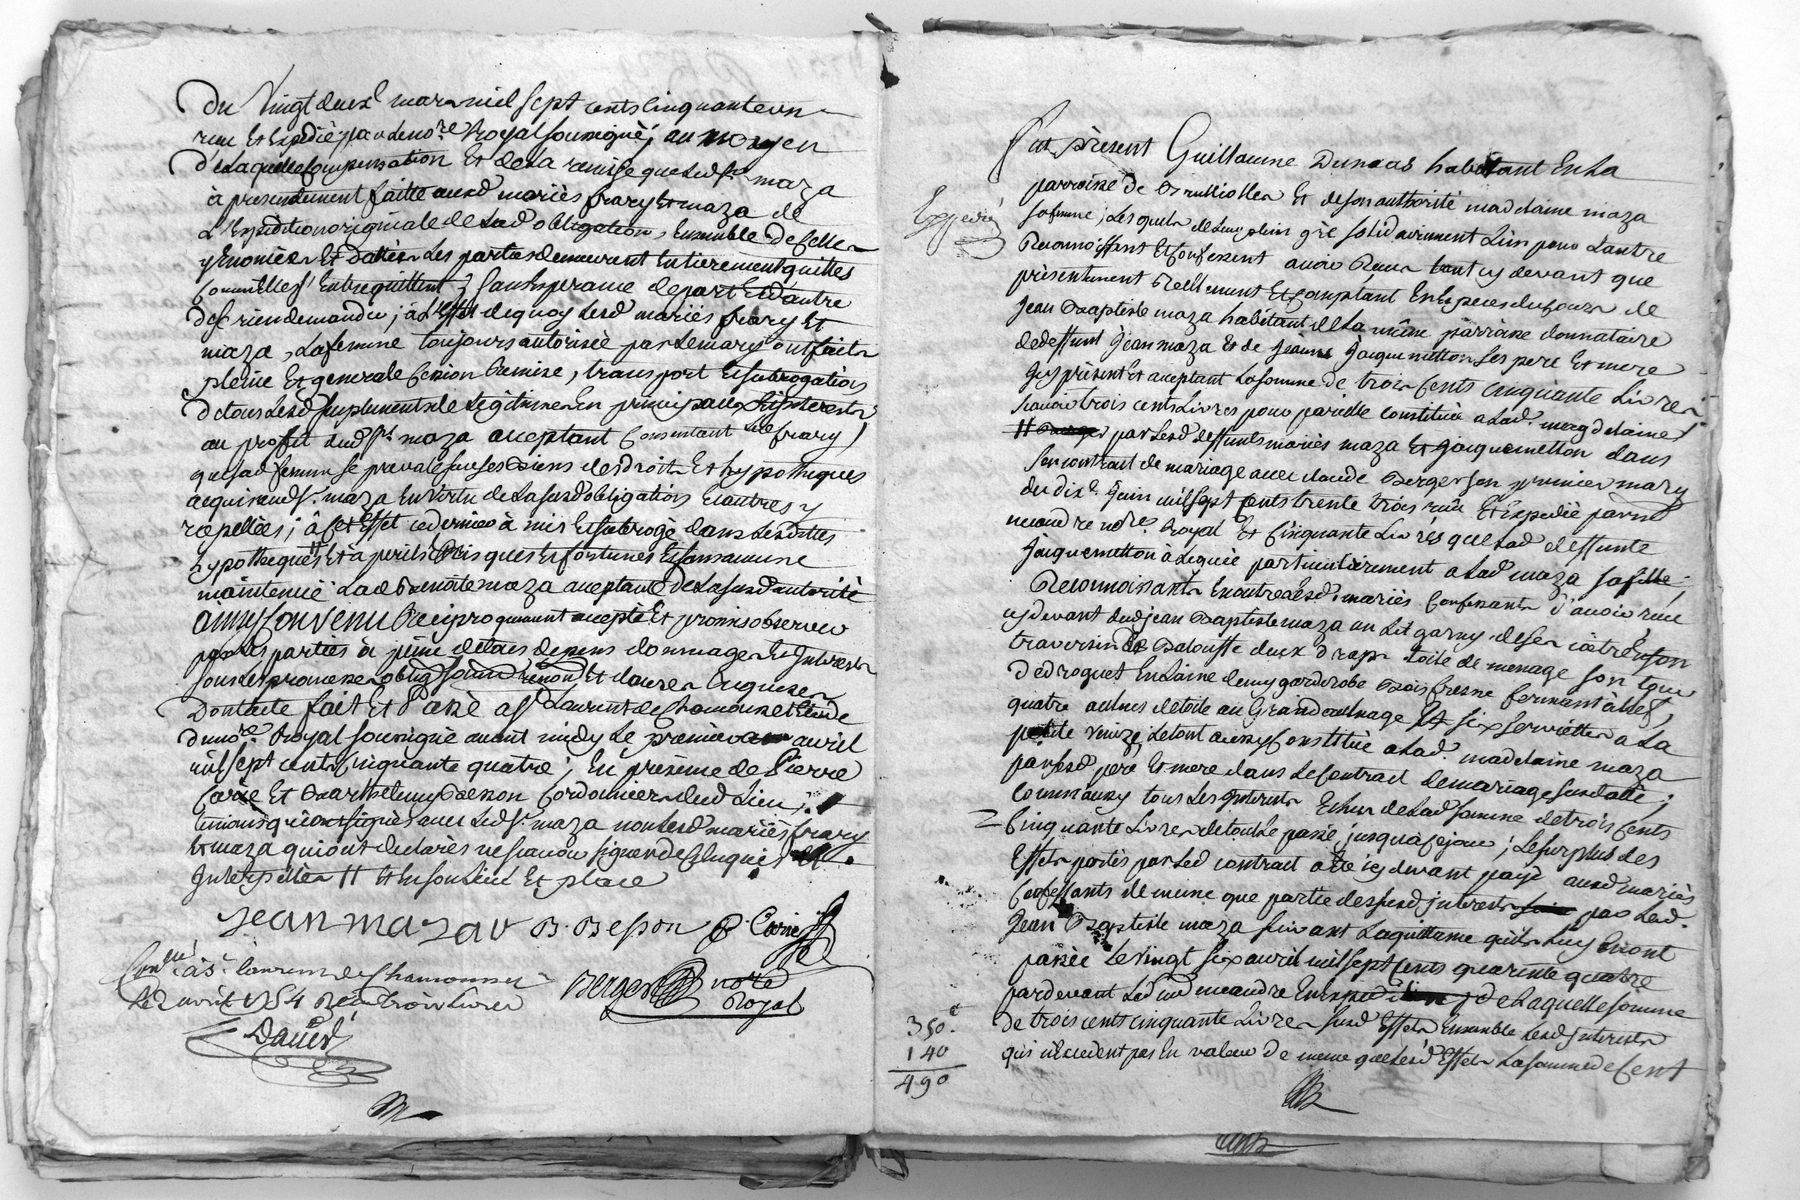 Du Vingt deux mars mil sept cents cinquante un
receu Et Expedié par le no.re Royal soussigné; au moyen
De laquelle Compensation Et de la remise que led. Sr. maza
à presentement faitte auxd. mariés frary Et maza de
L'Expedition originale de lad. obligation, Ensemble de celles
y Enoncées Et Dattées Les parties demeurant Entierement quittes
comme Elles s'Entrequittent sans Esperance de part Et d'autre
de se rien demander; à L'Effet de quoy lesd. mariés frary Et
maza, La femme toujours autorisée par le mary ont fait
pleine Et generale Cession Remise, transport Et subrogation
De tous Lesd. suplements de Legitime En principaux Et interests
au profit dud. Sr. maza acceptant Consentant led. frary
que sad. femme se prevale sur ses Biens des droits Et hypotheques
acquis aud. Sr. maza En vertu de la susd. obligation Et autres y
rapellées; à Cet Effet ce dernier à mis Et subrogé dans lesdittes
hypotheques Et à perils Risques Et fortunes Et sans aucune
maintenue lad. Benoite maza acceptant De La susd. autorité
ainsy Convenu Reciproquement accepté Et promis observer
par les parties à peine de tous depens dommages Et Interests
sous les promesses oblig. soum. renon. Et clauses requises
Dont acte fait Et Passé à St. Laurent de Chamousset Etude
du no.re Royal soussigné avant midy Le premier avril
mil sept cents Cinquante quatre; En presence de Pierre
Corie Et Barthelemy Besson Cordonniers dud. Lieu
temoins qui ont signés avec Led. Sr. maza non Lesd. mariés frary
Et maza qui ont declarés ne sçavoir signer de Ce Enquis Et
Interpellés
Jean mazav B. Besson P Corie
Con.lé à St. Laurent de Chamousset
Le 2 avril 1754 Reçu trois Livres
Berger no.re
Royal
David
Fut présent Guillaume Dumas habitant En La
parroisse de Brullioles Et de son authorité madelaine maza
Expedié
sa femme; Lesquels de leur plein gré solidairement L'un pour L'autre
Reconnoissent Et Confessent avoir Receu tant cy devant que
présentement Réellement Et Comptant En Especes du Cours de
Jean Baptiste maza habitant de La même parroisse donnataire
de deffunt Jean maza Et de Jeanne Jacquemetton Ses pere Et mere
Icy présent Et acceptant La somme de trois Cents Cinquante Livres
sçavoir trois cents Livres pour pareille constituée a Lad. magdelaine
par Lesd. deffunts mariés maza Et Jacquemetton dans
son contrat de mariage avec claude Berger son premier mary
du dix Juin mil sept Cents trente trois reçu Et Expedié par me
meandre no.re Royal Et Cinquante Livres que Lad. deffunte
Jacquemetton a Leguée particulierement a Lad. maza sa fille;
Reconnoissants En outre Lesd. mariés Confessants d'avoir reçu
cy devant dud. Jean Baptiste maza un Lit garny de sa
traversin De Balouffe deux draps toille de menage son tour
De droguet En Laine demy garderobe Bois fresne fermant à clef,
quatre aulnes de toile au Grand aulnage Et six serviettes a La
petite Venize, Le tout aussy Constitué a Lad. madelaine maza
par sesd. pere Et mere dans Le Contract de mariage susdatté;
Comm'aussy tous Les Interests Echus de Lad. somme de trois Cents
Cinquante Livres de tout Le passé jusqu'a Ce jour; Le surplus des
Effets portés par Led. contract a été icy devant payé auxd. mariés
Confessants de meme que partie desd. susd. interests par Led.
Jean Baptiste maza suivant La quittance qu'ils Luy En ont
passée Le vingt six avril mil sept Cents quarante quatre
pardevant Led. me meandre de Laquelle somme
350.#
De trois cent cinquante Livres susd. Effets Ensemble lesd. Interests
140
qui n'Excedent pas En valeur De meme que Lesd. Effets La somme de Cent
490